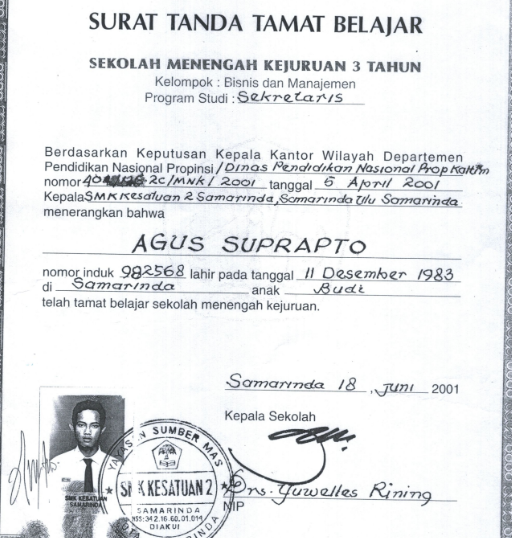 SURAT TANDA TAMAT BELAJAR
SEKOLAH MENENGAH KEJURUAN 3 TAHUN
Kelompok : Bisnis dan Manajemen
Program Studi : Sekretaris
Berdasarkan Keputusan Kepala Kantor Wilayah Departemen
Pendidikan Nasional Propinsi / Dinas Pendidikan Nasional Prop Kaltim
nomor 2C/MNK/2001 tanggal 5 April 2001
Kepala SMK Kesatuan 2 Samarinda, Samarinda Ulu Samarinda
menerangkan bahwa
AGUS SUPRAPTO
nomor induk 982568 lahir pada tanggal 11 Desember 1983
di Samarinda anak Budi
telah tamat belajar sekolah menengah kejuruan.
Samarinda 18 , Juni 2001
Kepala Sekolah
YAYASAN SUMBER MAS
SMK KESATUAN 2
SAMARINDA
DIAKUI
SMK KESATUAN
SAMARINDA
Drs. Yuwelles Rining
NIP